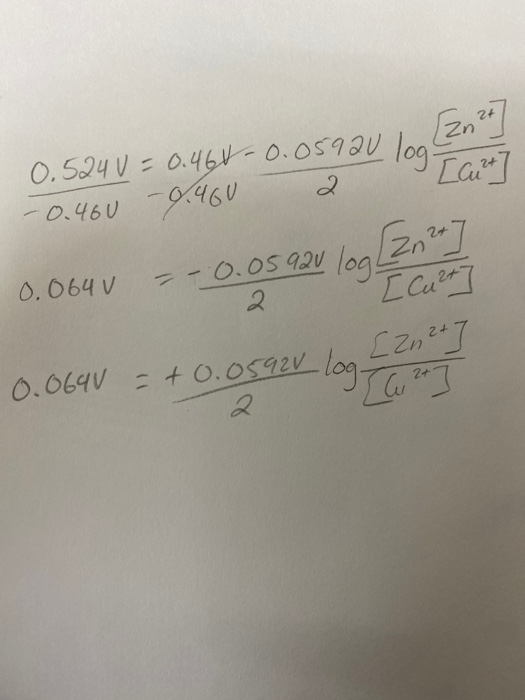 0.524V = 0.46V - 0.0592V/2 log [Zn²⁺]/[Cu²⁺]
-0.46V -0.46V
0.064V = - 0.0592V/2 log [Zn²⁺]/[Cu²⁺]
0.064V = + 0.0592V/2 log [Zn²⁺]/[Cu²⁺]